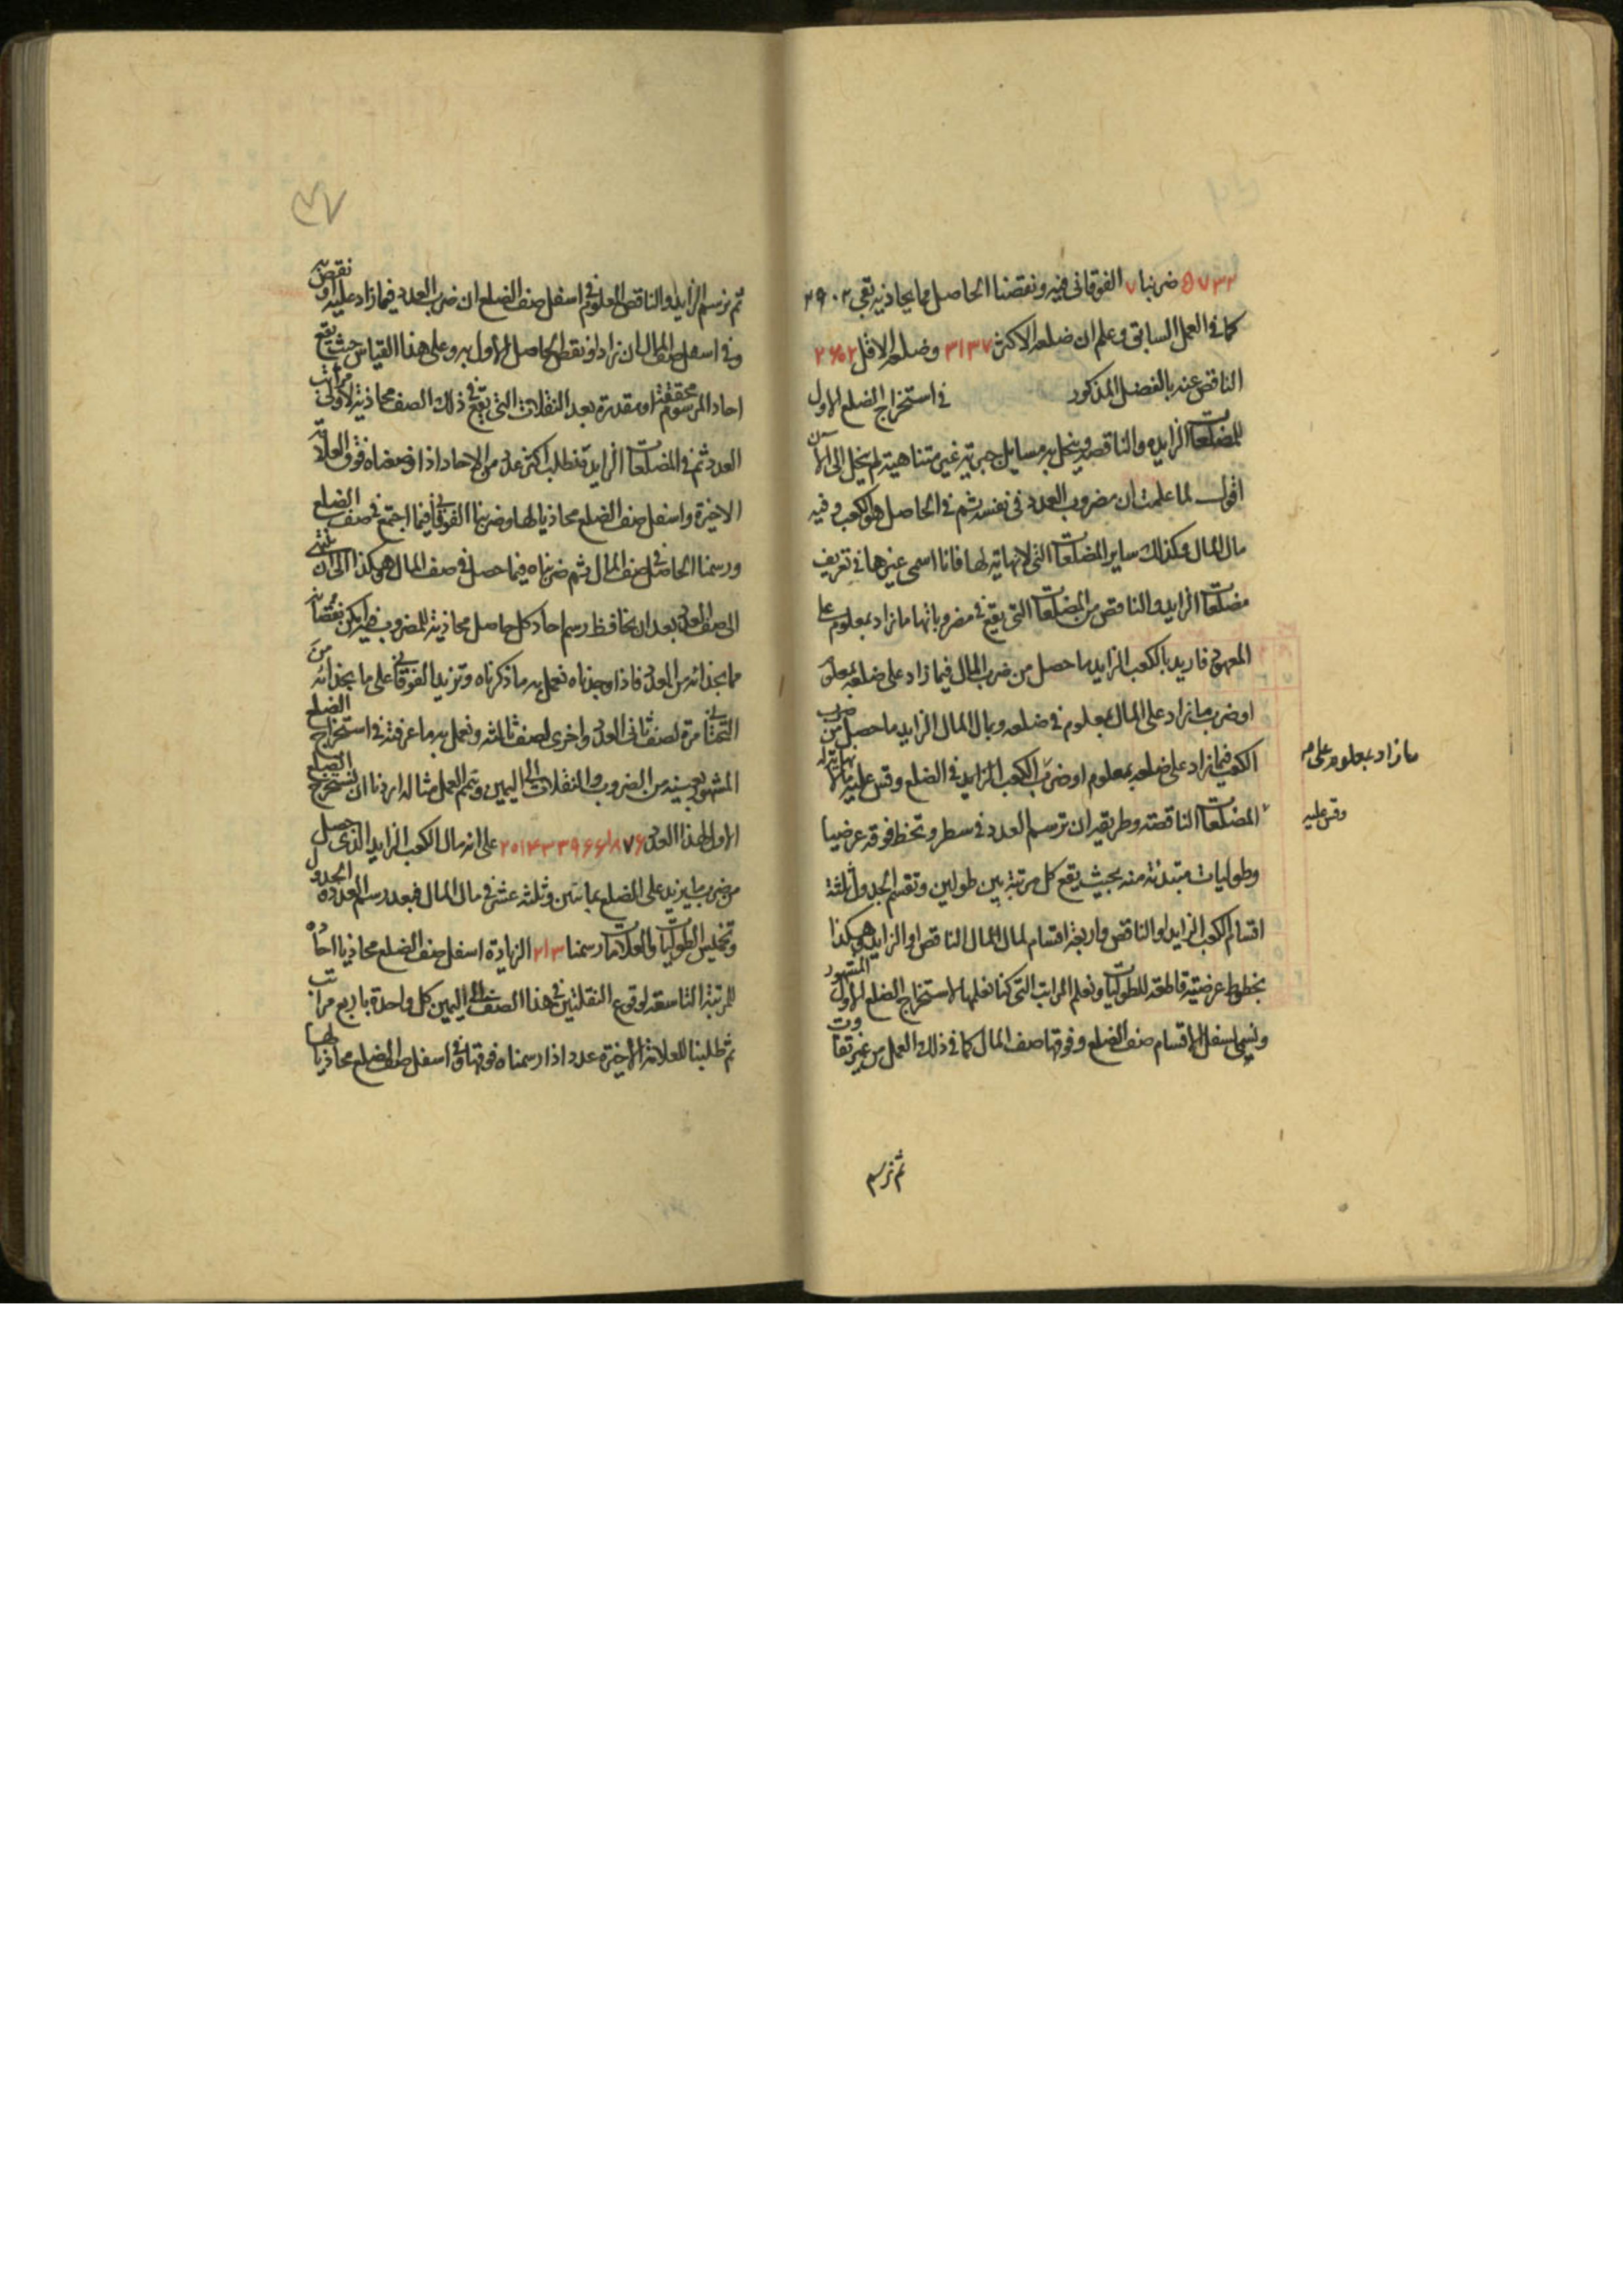 ٥٧٣٢ ضربنا ٧ الفوقانى فيه ونقصنا الحاصل مما يحاذيه بقى ٢٩٠٢
كما فى العمل السابق وعلم ان ضلعه الاكثر ٣١٣٧ وضلعه الاقل
الناقص عنه بالفضل المذكور فى استخراج الضلع الاول
للمضلعات الزايدة والناقصة وينحل به مسايل جبرية غير متناهية لم ينحل الى الآن
اقول لما علمت ان مضروب العدد فى نفسه ثم فى الحاصل هو الكعب وفيه
مال المال وكذلك ساير المضلعات التى لا نهاية لها فانا اسمى غيرها فى تعريف
مضلعات الزايد والناقص من المضلعات التى يقع فى مضروباتها ما زاد بمعلوم على
المعهود فاريد بالكعب الزايد ما حصل من ضرب المال فيما زاد على ضلعه بمعلوم
او ضرب ما زاد على المال بمعلوم فى ضلعه وبمال المال الزايد ما حصل من ضرب
الكعب فيما زاد على ضلعه بمعلوم او ضرب الكعب الزايد فى الضلع وقس عليه ما لا نهاية له
المضلعات الناقصة وطريقه ان ترسم العدد فى سطر وتخط فوقه عرضيا
وطوليات مبتدئة منه بحيث يقع كل مرتبة بين طولين وتقسم الجدول ثلثة
اقسام للكعب الزايد او الناقص واربعة اقسام لمال المال الناقص او الزايد وهكذا
بخطوط عرضية قاطعة للطوليات ونعلم المراتب التى كنا نعلمها لاستخراج الضلع الاول المشهور
ونسمى اسفل الاقسام صف الضلع وفوقها صف المال كما فى ذلك العمل من غير تفاوت
ثم نرسم
ما زاد بمعلوم على
وقس عليه
٣٧
ثم نرسم الزايد او الناقص المعلوم فى اسفل صف الضلع ان ضرب العدد فيما زاد عليه او نقص
وفى اسفل صف المال ان زاد او نقص الحاصل الاول به وعلى هذا القياس حيث يقع
احاد المرسوم محققة او مقدرة بعد النقلات التى يقع فى ذلك الصف محاذية لاولى مراتب
العدد ثم فى المضلعات الزايدة نطلب اكثر عدد من الاحاد اذا وضعناه فوق العلامة
الاخيرة واسفل صف الضلع محاذيا لها وضربنا الفوقانى فيما اجتمع فى صف الضلع
ورسمنا الحاصل فى صف المال ثم ضربناه فيما حصل فى صف المال وهكذا الى ان ينتهى
الى صف العدد بعد ان نحافظ رسم احاد كل حاصل محاذية للمضروب فيه امكن نقصانه
مما بحذائه من العدد فاذا وجدناه نعمل به ما ذكرناه ونزيد الفوقانى على ما بحذائه من
التحتانى مرة لصف ثانى العدد واخرى لصف ثالثه ونعمل به ما عرفته فى استخراج الضلع
المشهور بعينه من الضروب والنقلات الى اليمين ويتم العمل مثاله اردنا ان نستخرج الضلع
الاول لهذا العدد ٢٥١٤٣٣٩٦٦١٨٧۶ على انه مال الكعب الزايد الذى حصل
من ضرب ما يزيد على الضلع بماتين وثلثة عشر فى مال المال فبعد رسم العدد والجدول
وتخليص الطوليات والعلامات رسمنا ٢١٣ الزيادة اسفل صف الضلع محاذيا احاده
للمرتبة التاسعة لوقوع النقلتين فى هذا الصف الى اليمين كل واحدة باربع مراتب
ثم طلبنا للعلامة الاخيرة عددا اذا رسمناه فوقها وفى اسفل صف الضلع محاذيا لها